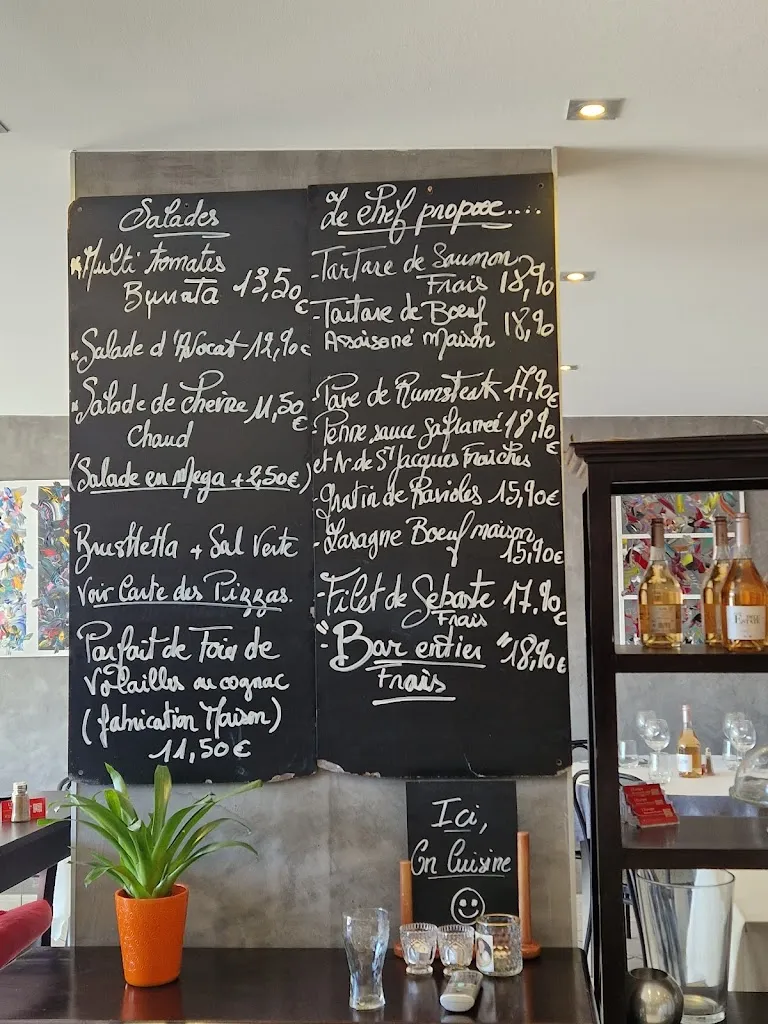 Salades
Multi tomates
Burrata 13,50€
Salade d'Avocat 12,90€
Salade de chèvre 11,50€
Chaud
(Salade en Mega + 2,50€)
Brusthetta + Sal Verte
Voir Carte des Pizzas.
Parfait de Foie de
Volailles au cognac
(fabrication Maison)
11,50€
Le chef propose....
-Tartare de Saumon
Frais 18,90
-Tartare de Boeuf 18,90
Assaisoné Maison
-Pavé de Rumsteak 17,90€
-Penne sauce Safranée 18,90€
et N. de St Jacques Fraiches
-Gratin de Ravioles 15,90€
-Lasagne Boeuf maison
15,90€
-Filet de Sebaste 17,90€
Frais
-"Bar entier" 18,90€
Frais
Ici,
On Cuisine